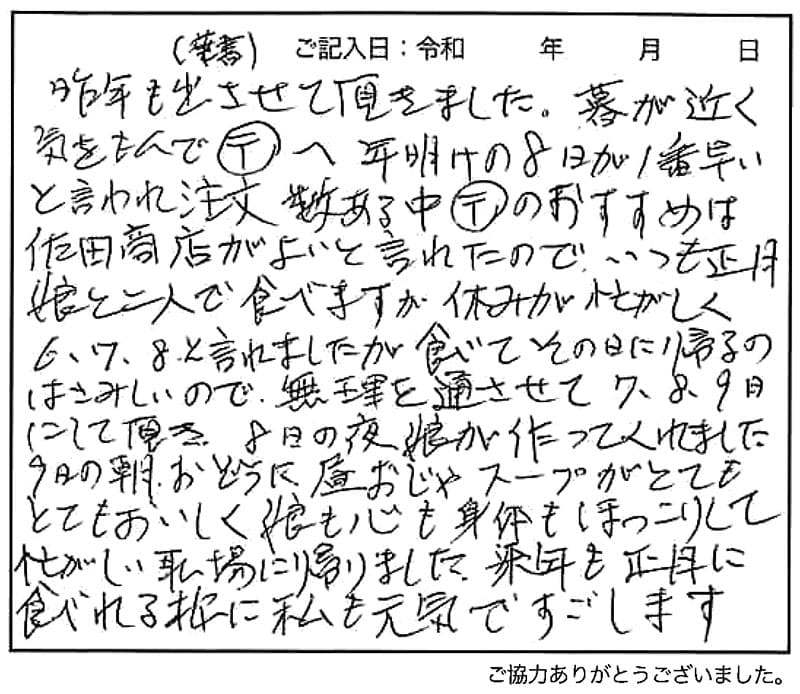 (葉書) ご記入日：令和 年 月 日
昨年も出させて頂きました。暮が近く
気をもんで〒へ 年明けの8日が1番早い
と言われ注文 数ある中〒のおすすめは
佐田商店がよいと言れたので、いつも正月
娘と二人で食べますが 休みが忙がしく
6、7、8、と言れましたが 食べてその日に帰るの
はさみしいので、無理を通させて 7、8、9日
にして頂き 8日の夜 娘が作ってくれました
9日の朝、おぞうに 昼おじや スープがとても
とてもおいしく 娘も心も身体もほっこりして
忙がしい職場に帰りました、来年も正月に
食べれる様に 私も元気ですごします
ご協力ありがとうございました。